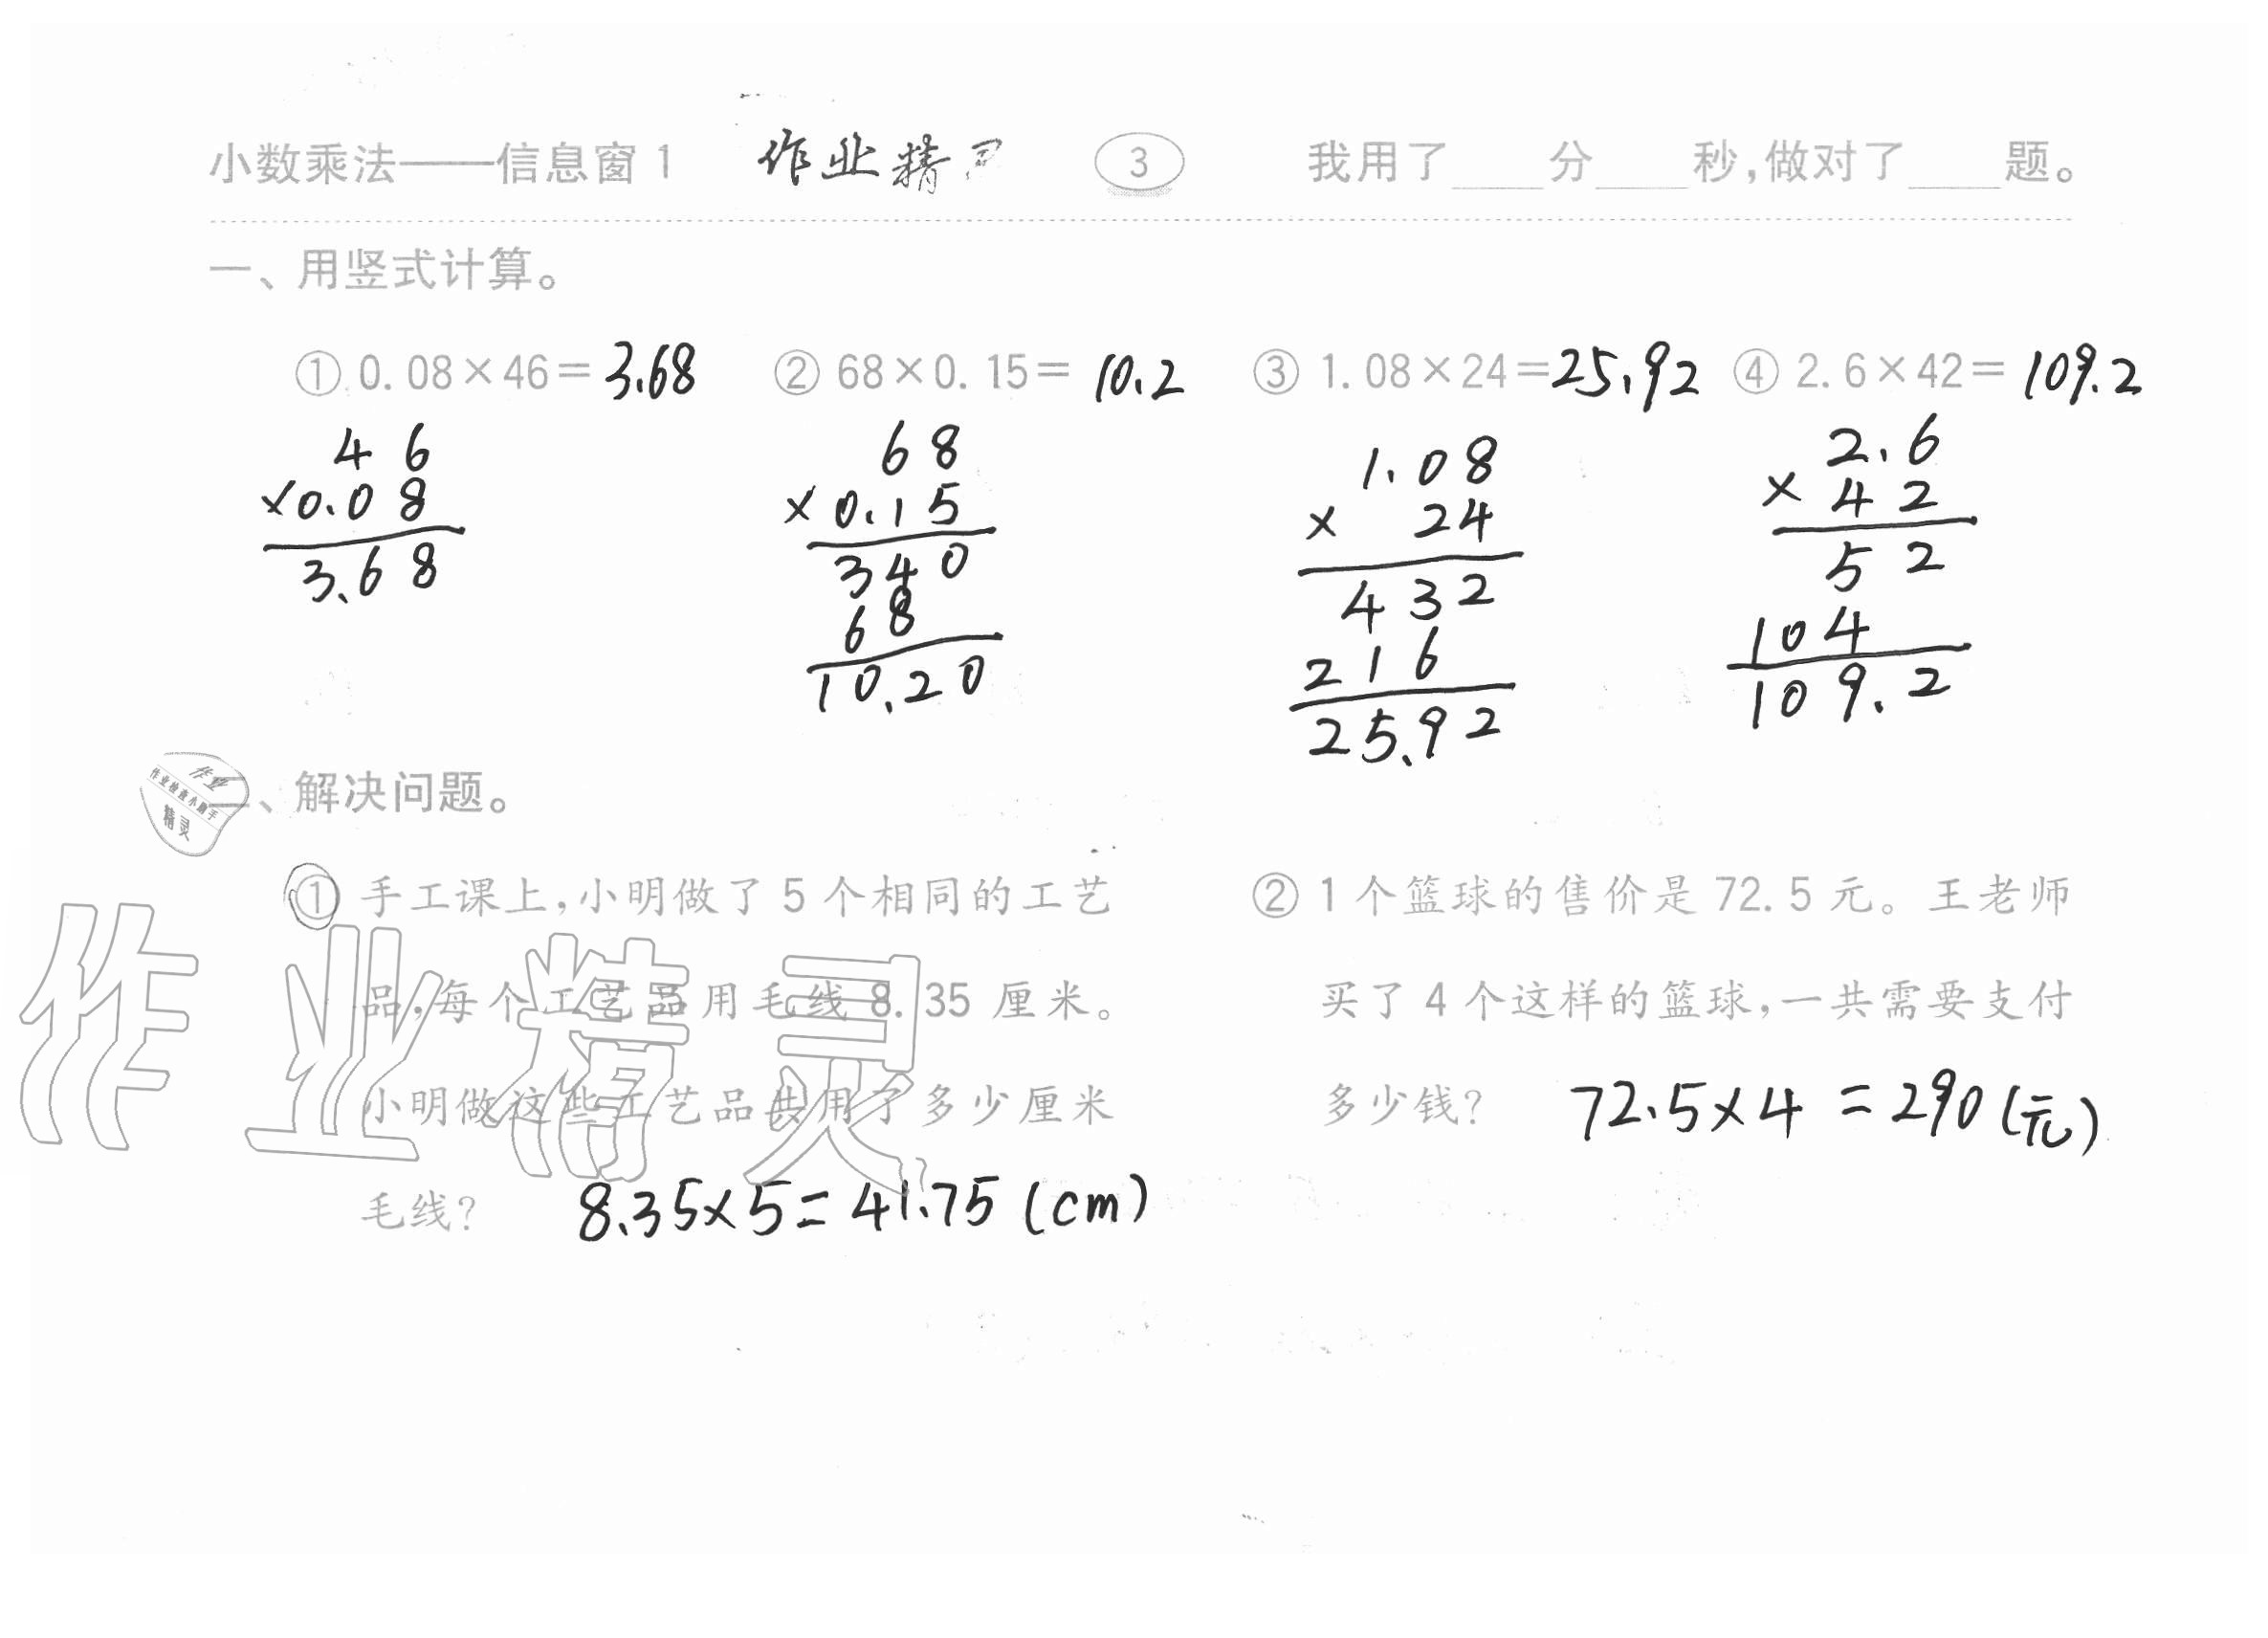 小数乘法——信息窗1 作业精 3 我用了____分____秒,做对了____题。
一、用竖式计算。
① 0.08×46=3.68 ② 68×0.15=10.2 ③ 1.08×24=25.92 ④ 2.6×42=109.2
46 68 1.08 2.6
×0.08 ×0.15 ×24 ×42
3.68 340 432 52
68 216 104
10.20 25.92 109.2
作业
作业检查小助手
精灵
二、解决问题。
① 手工课上,小明做了5个相同的工艺
品,每个工艺品用毛线8.35厘米。
小明做这些工艺品共用了多少厘米
毛线? 8.35×5=41.75(cm)
② 1个篮球的售价是72.5元。王老师
买了4个这样的篮球,一共需要支付
多少钱? 72.5×4=290(元)
作业精灵